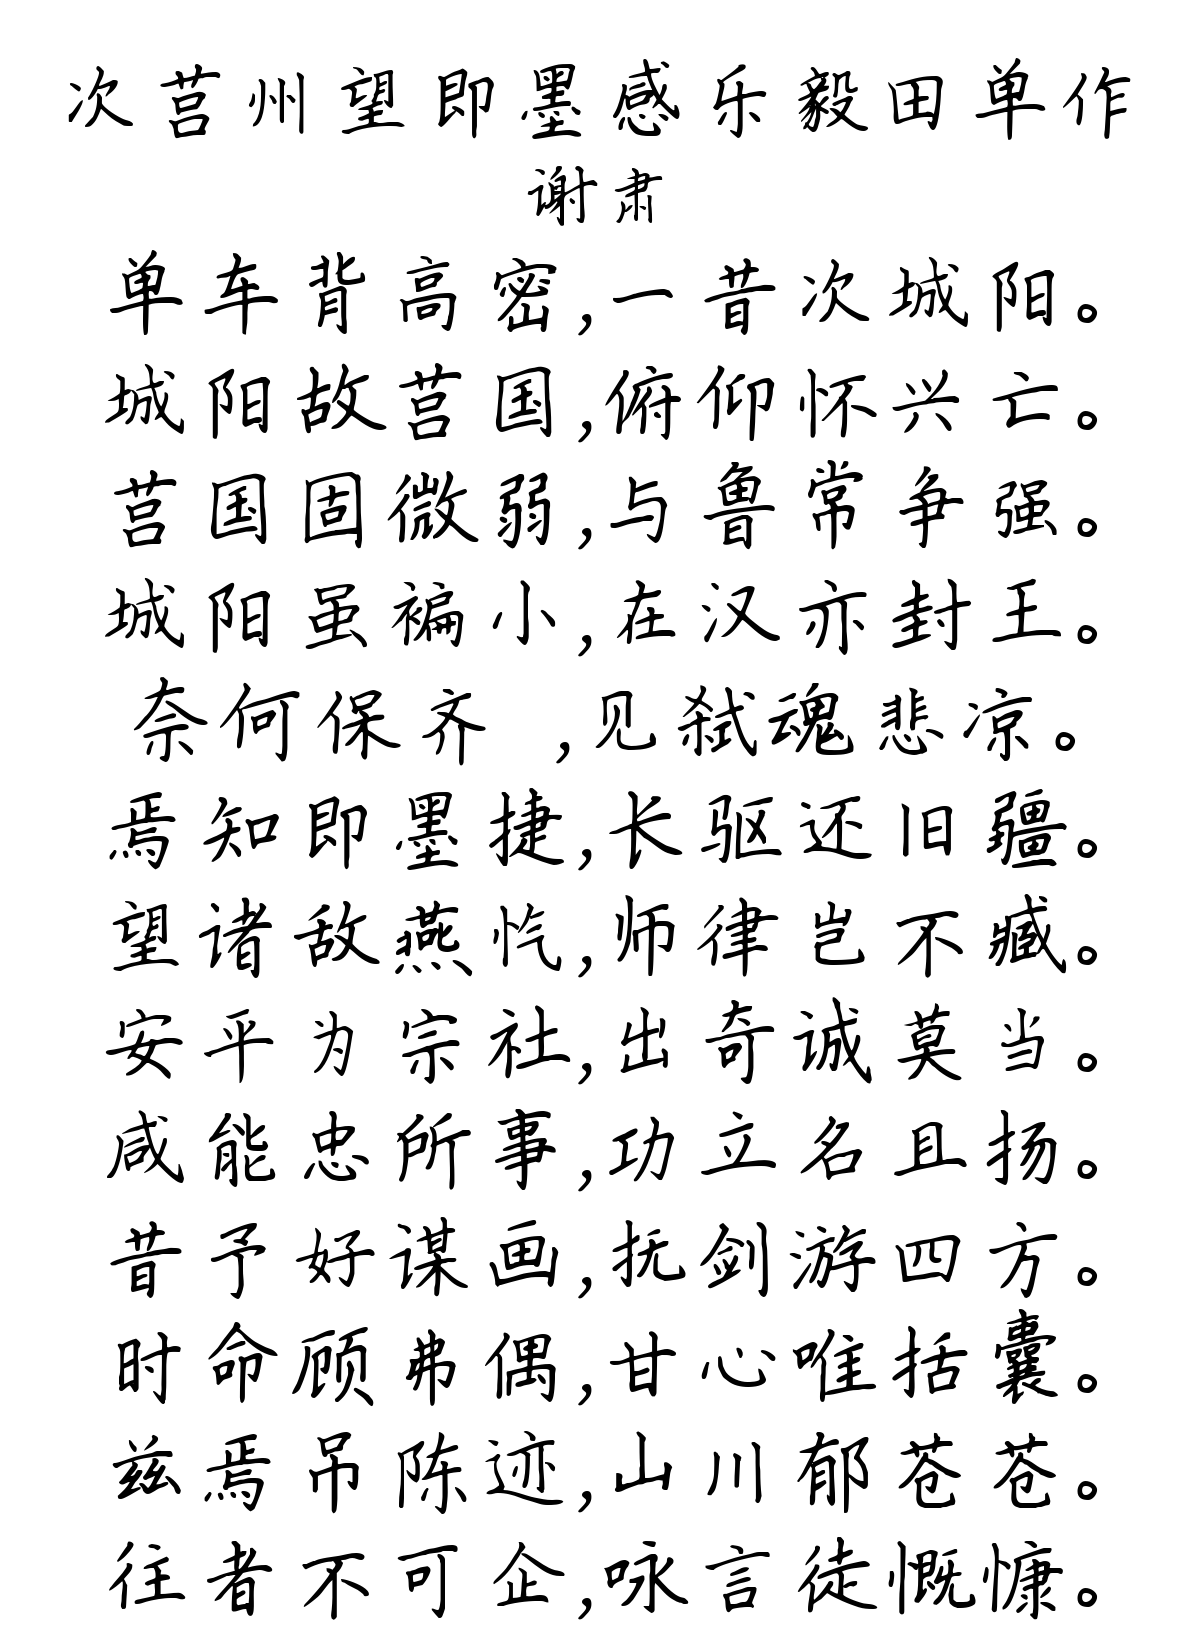 次莒州望即墨感乐毅田单作
谢肃
单车背高密,一昔次城阳。
城阳故莒国,俯仰怀兴亡。
莒国固微弱,与鲁常争强。
城阳虽褊小,在汉亦封王。
奈何保齐 ,见弑魂悲凉。
焉知即墨捷,长驱还旧疆。
望诸敌燕忾,师律岂不臧。
安平为宗社,出奇诚莫当。
咸能忠所事,功立名且扬。
昔予好谋画,抚剑游四方。
时命顾弗偶,甘心唯括囊。
兹焉吊陈迹,山川郁苍苍。
往者不可企,咏言徒慨慷。